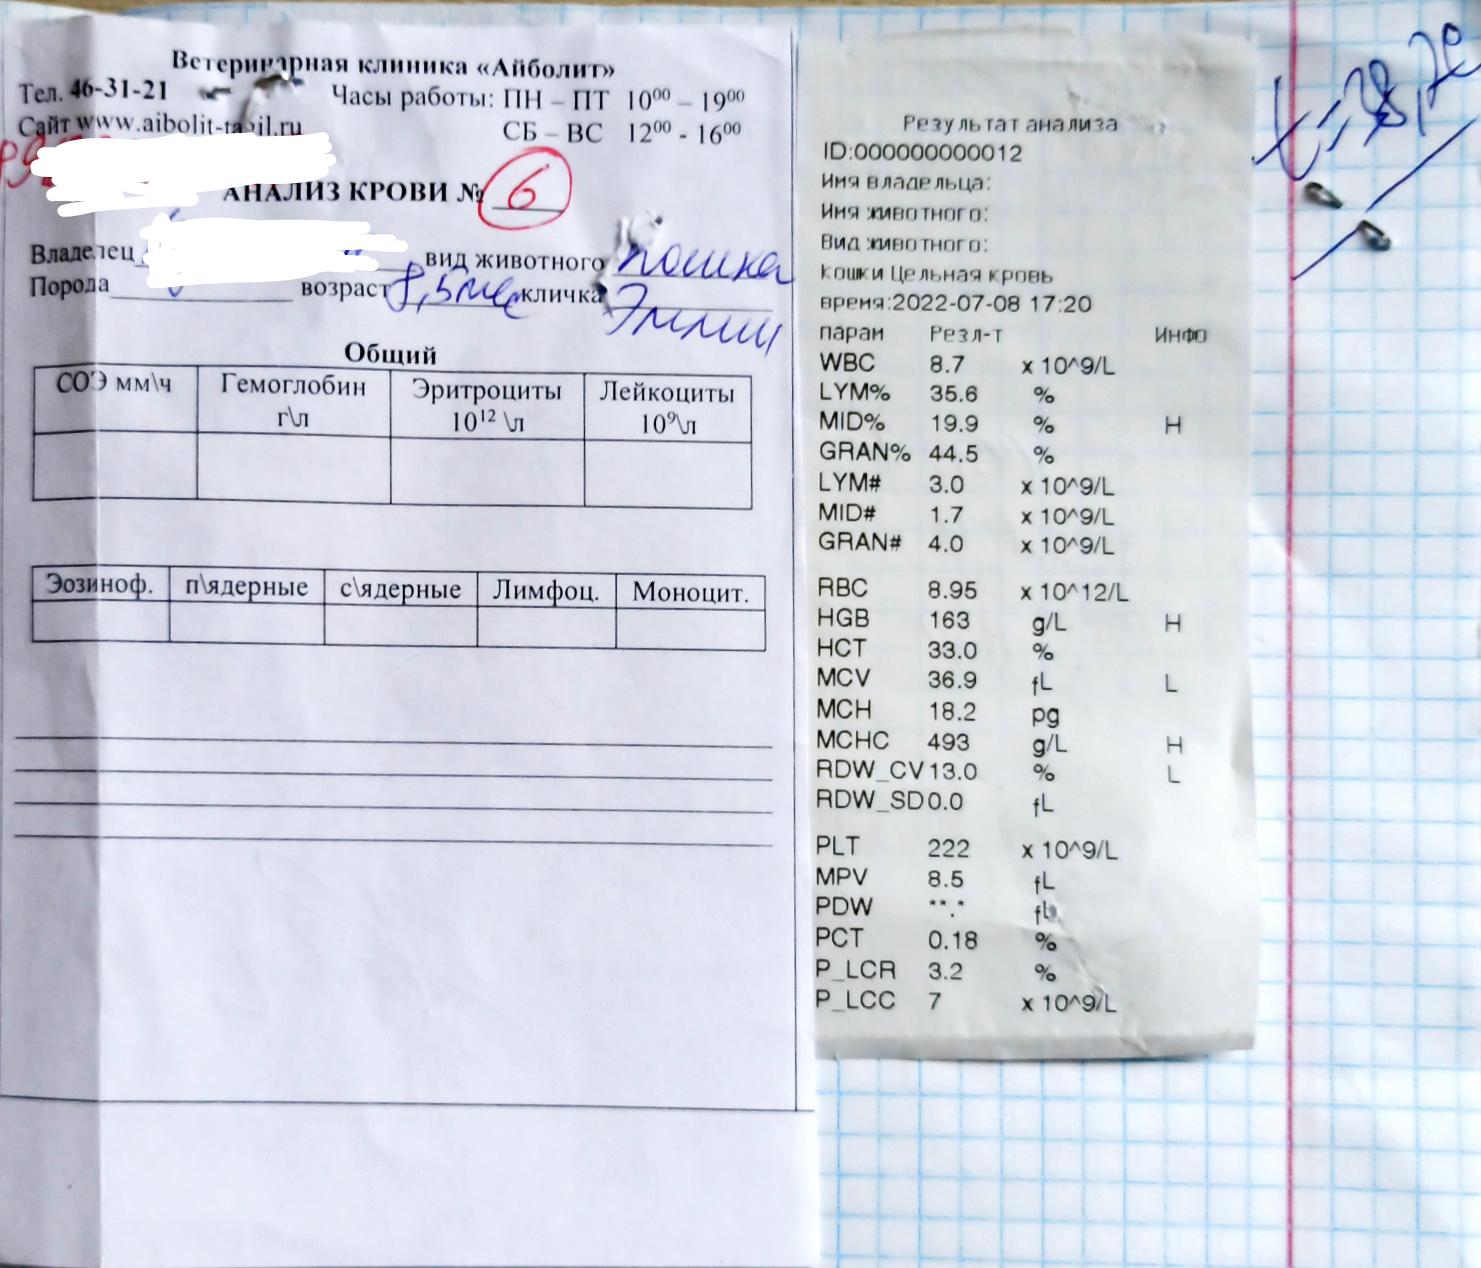 Ветеринарная клиника «Айболит»
Тел. 46-31-21 Часы работы: ПН – ПТ 10⁰⁰ – 19⁰⁰
Сайт www.aibolit-tagil.ru СБ – ВС 12⁰⁰ - 16⁰⁰
АНАЛИЗ КРОВИ № 6
Владелец вид животного кошка
Порода возраст 8,5 мес кличка Эмили
Общий
СОЭ мм\ч Гемоглобин г\л Эритроциты 10¹² \л Лейкоциты 10⁹\л
Эозиноф. п\ядерные с\ядерные Лимфоц. Моноцит.
Результат анализа
ID:000000000012
Имя владельца:
Имя животного:
Вид животного:
кошки Цельная кровь
время:2022-07-08 17:20
парам Резл-т Инфо
WBC 8.7 x 10^9/L
LYM% 35.6 %
MID% 19.9 % H
GRAN% 44.5 %
LYM# 3.0 x 10^9/L
MID# 1.7 x 10^9/L
GRAN# 4.0 x 10^9/L
RBC 8.95 x 10^12/L
HGB 163 g/L H
HCT 33.0 %
MCV 36.9 fL L
MCH 18.2 pg
MCHC 493 g/L H
RDW_CV 13.0 % L
RDW_SD 0.0 fL
PLT 222 x 10^9/L
MPV 8.5 fL
PDW **.* fL
PCT 0.18 %
P_LCR 3.2 %
P_LCC 7 x 10^9/L